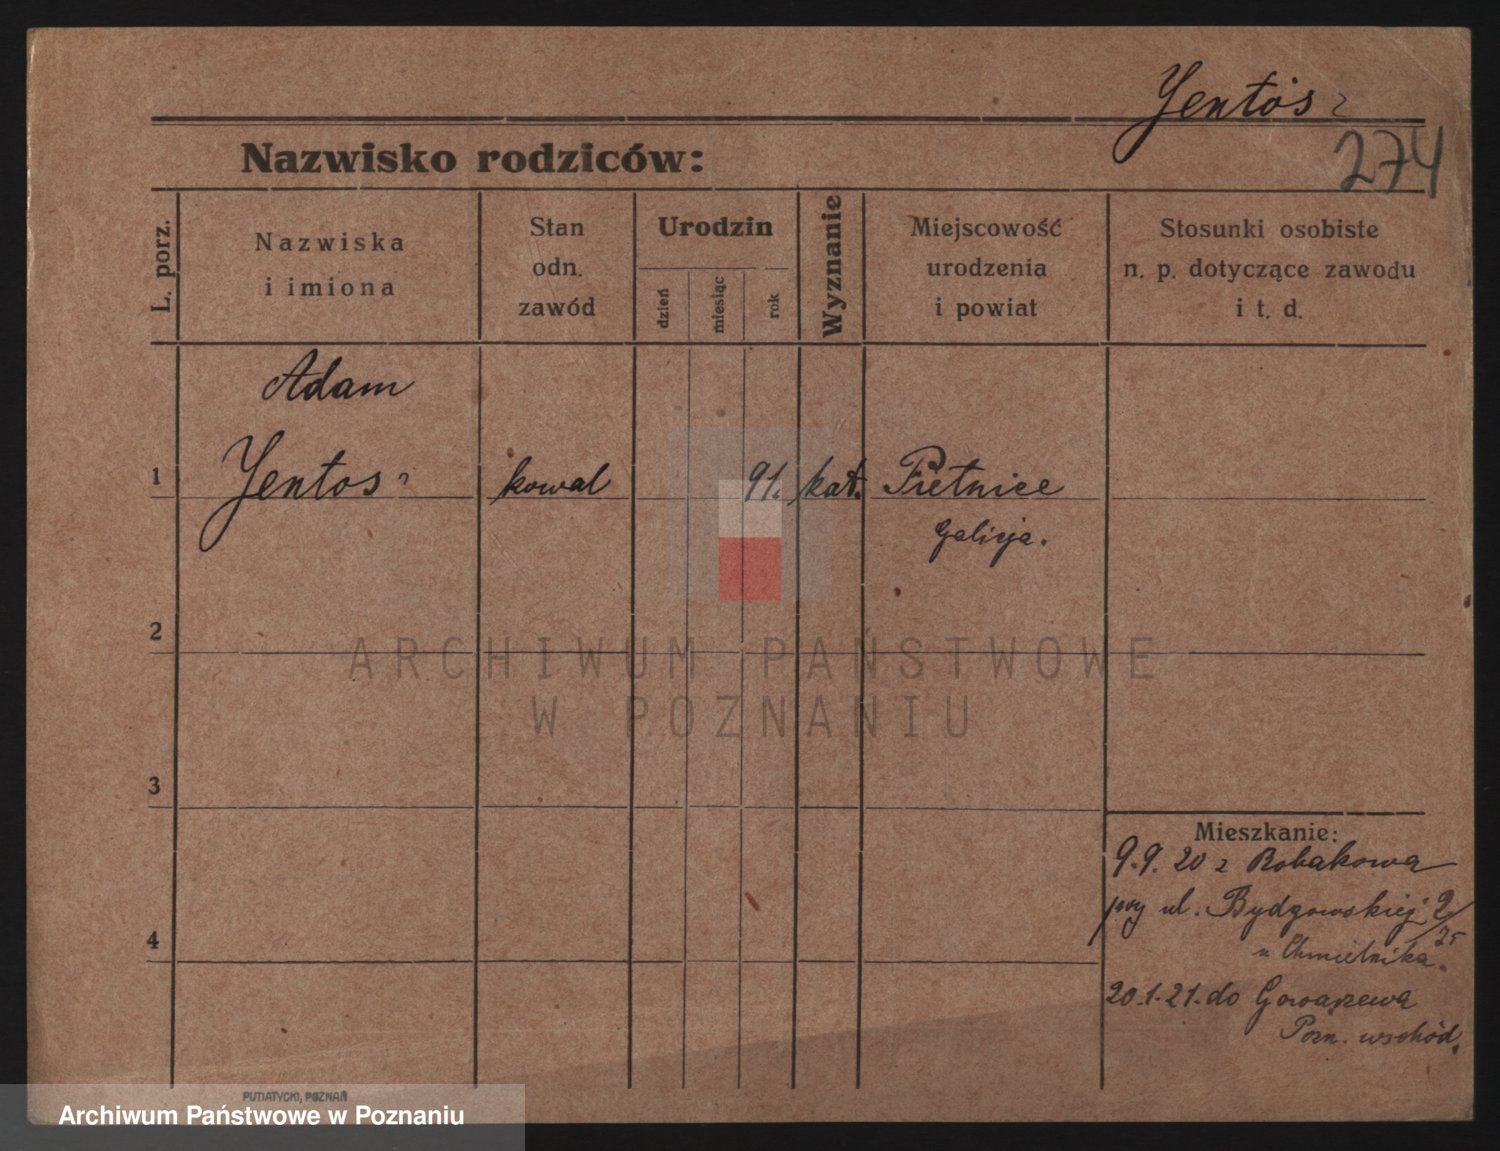 Jentoś
274
Nazwisko rodziców:
L. porz.
Nazwiska
i imiona
Stan
odn.
zawód
Urodzin
dzień
miesiąc
rok
Wyznanie
Miejscowość
urodzenia
i powiat
Stosunki osobiste
n. p. dotyczące zawodu
i t. d.
Adam
1 Jentos kowal 91. kat. Pietnice
Galicja.
2
ARCHIWUM PAŃSTWOWE
W POZNANIU
3
Mieszkanie:
9.9.20 z Robakowa
przy ul. Bydgowskiej 2/25
4
u Chmielnika.
20.1.21. do Gowarzewa
Pozn. wschód.
PUTIATYCKI, POZNAŃ
Archiwum Państwowe w Poznaniu